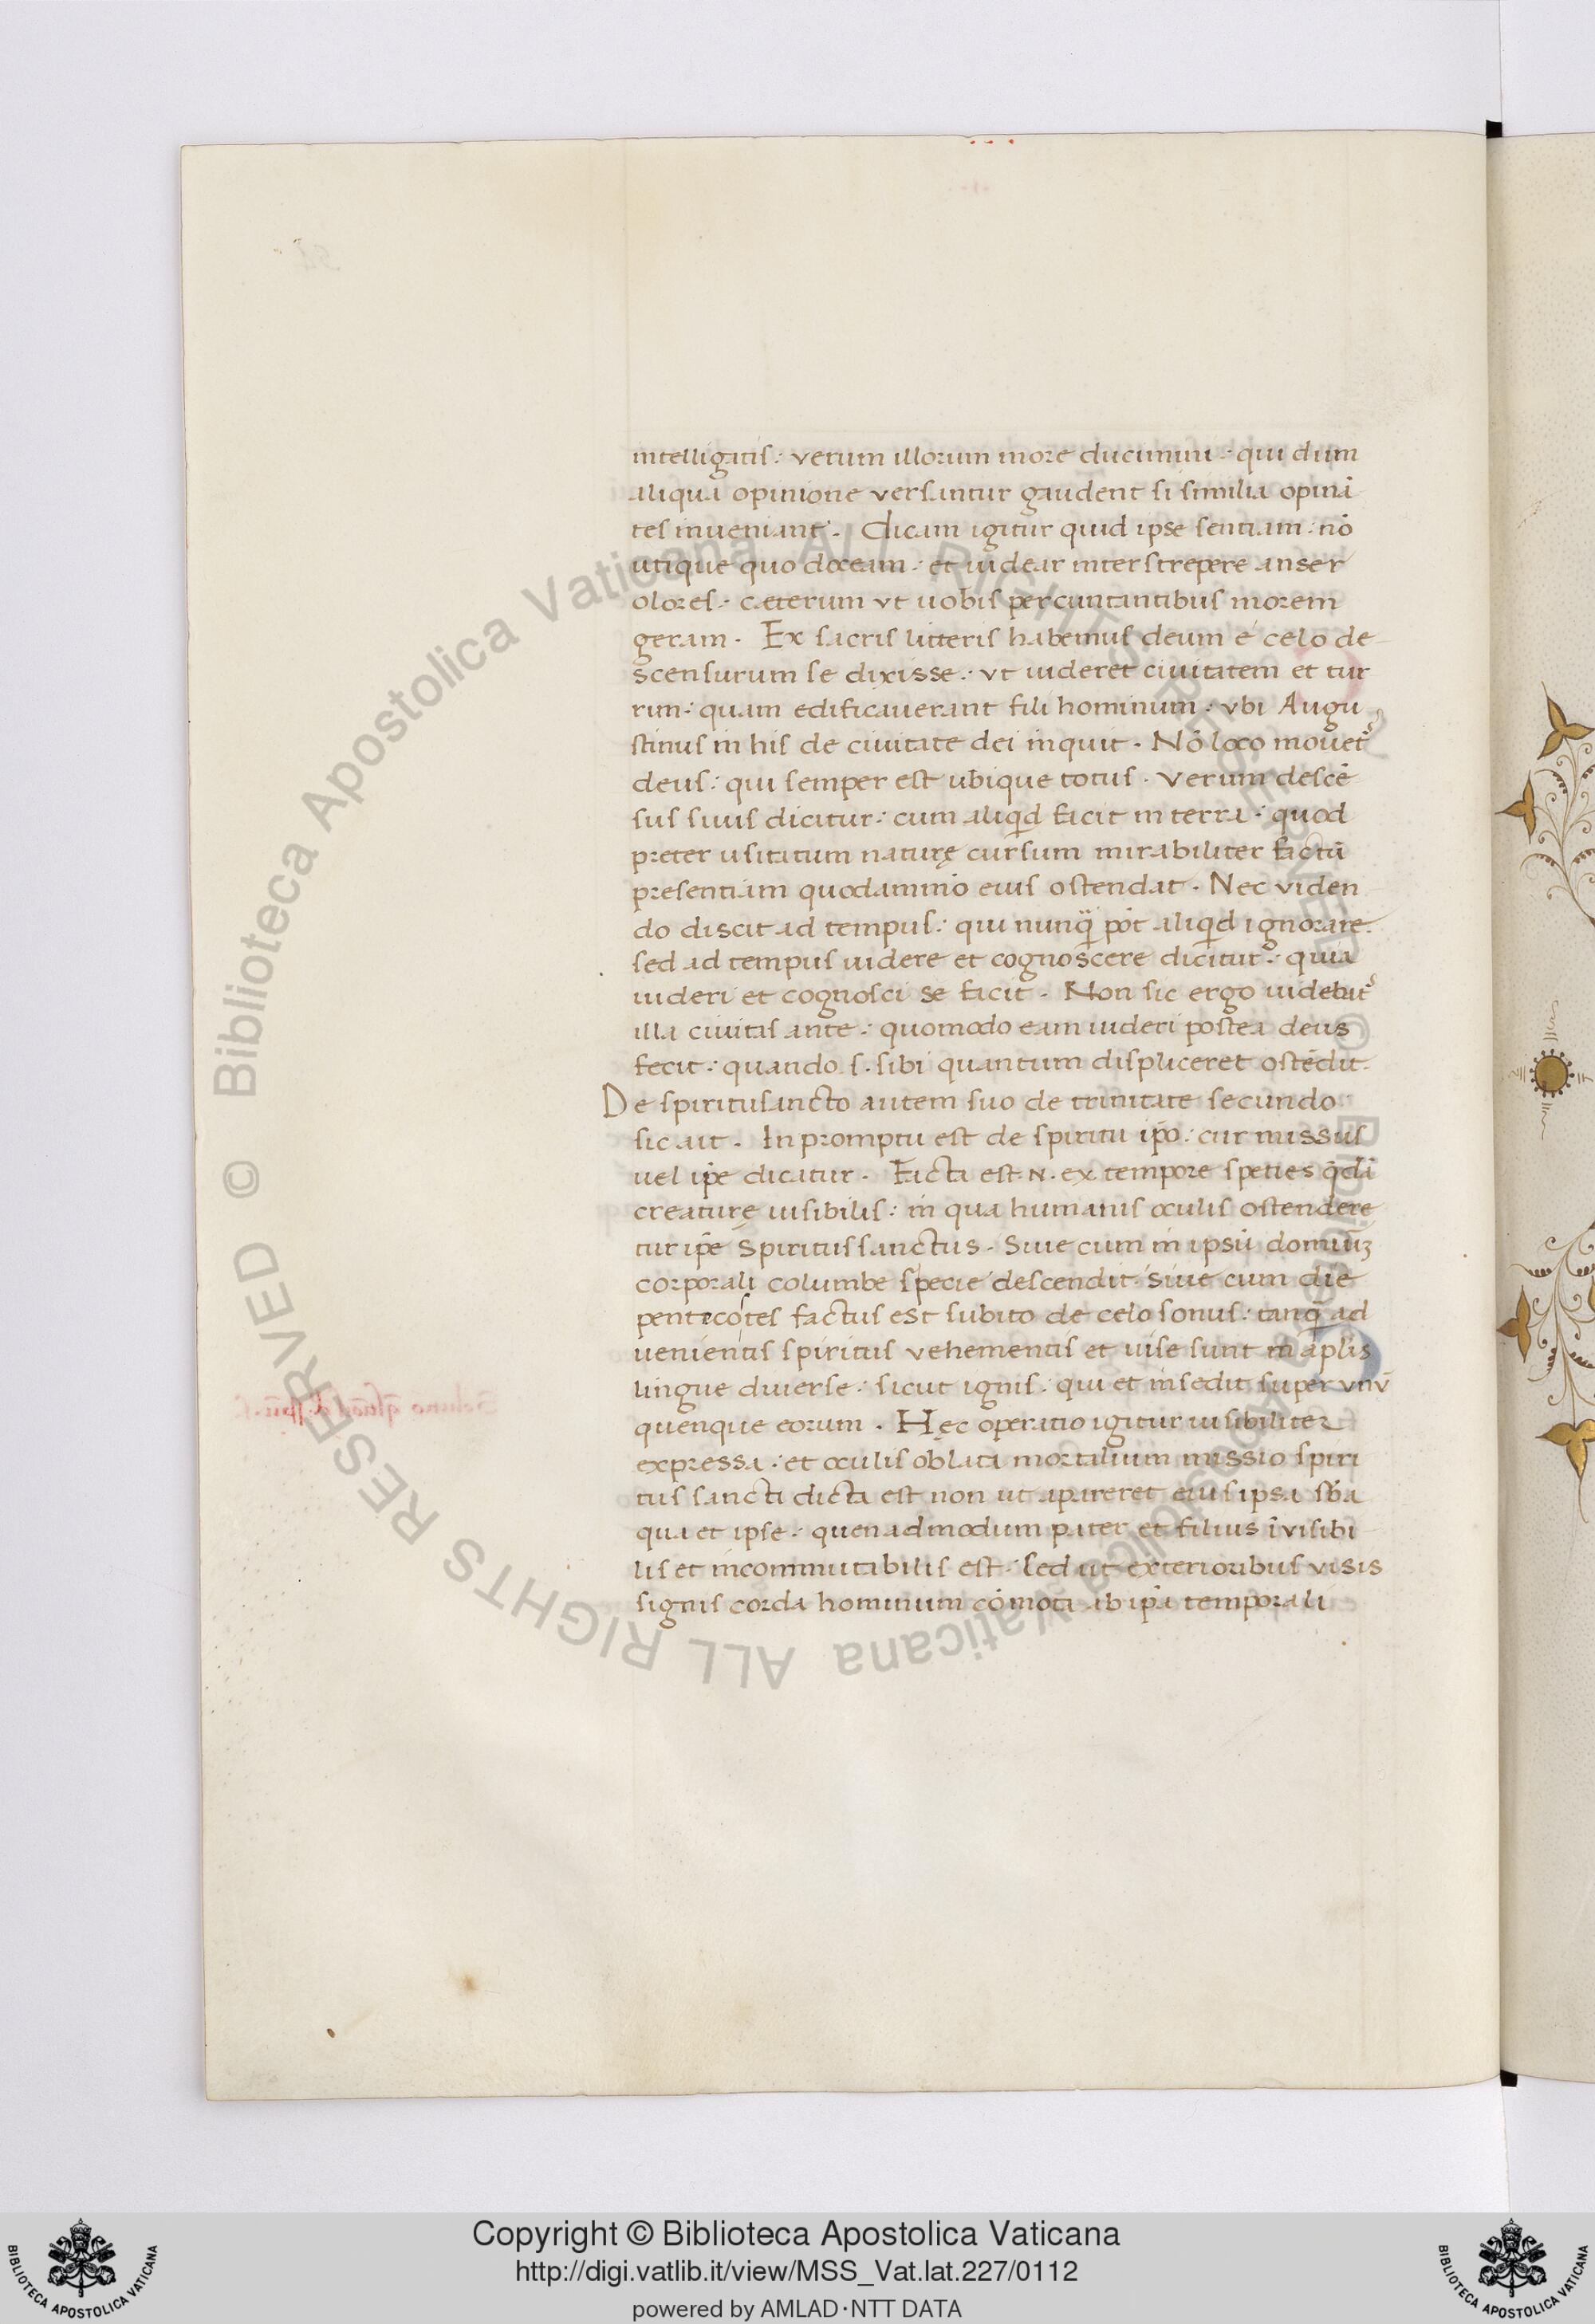 intelligatis: verum illorum more ducimini: qui dum
aliqua opinione versantur gaudent si similia opinā
tes inveniant. Dicam igitur quid ipse sentiam: nō
utique quo doceam: et uidear interstrepere anser
olores: cæterum vt uobis percuntantibus morem
geram. Ex sacris litteris habemus deum e celo de
scensurum se dixisse: vt uideret ciuitatem et tur
rim: quam edificauerant fili hominum: vbi Augu
stinus in his de ciuitate dei inquit. Nō loco mouet᷑
deus: qui semper est ubique totus. Verum descē
sus suus dicitur: cum aliqd facit in terra: quod
preter usitatum naturę cursum mirabiliter factū
presentiam quodammō eius ostendat. Nec viden
do discit ad tempus: qui nunq̄ pōt aliqd ignorare.
sed ad tempus uidere et cognoscere dicitur: quia
uideri et cognosci se facit. Non sic ergo uidebat᷑
illa ciuitas ante: quomodo eam uideri postea deus
fecit: quando .s. sibi quantum displiceret ostēdit.
De spiritusancto autem suo de trinitate secundo
sic ait. In promptu est de spiritu ip̄o: cur missus
uel ip̄e dicatur. Facta est .N. ex tempore speties q̄dā
creaturę uisibilis: in qua humanis oculis ostendere
tur ip̄e Spiritus sanctus. Siue cum in ipsū dominūʒ
corporali columbe specie descendit. siue cum die
pentecostes factus est subito de celo sonus: tanq̄ ad
uenientis spiritus vehementis et uise sunt in ap̄lis
lingue diuerse: sicut ignis: qui et insedit super vnū
quenque eorum. Hęc operatio igitur uisibiliter
expressa: et oculis oblata mortalium missio spiri
tus sancti dicta est non ut apareret eius ipsa sb̄a
qua et ipse: quenadmodum pater et filius īvisibi
lis et incommutabilis est: sed ut exterioribus visis
signis corda hominum cōmota ab ip̄a temporali
Copyright © Biblioteca Apostolica Vaticana
http://digi.vatlib.it/view/MSS_Vat.lat.227/0112
powered by AMLAD·NTT DATA
© Biblioteca Apostolica Vaticana ALL RIGHTS RESERVED
© Biblioteca Apostolica Vaticana ALL RIGHTS RESERVED
BIBLIOTECA APOSTOLICA VATICANA
BIBLIOTECA APOSTOLICA VATICANA